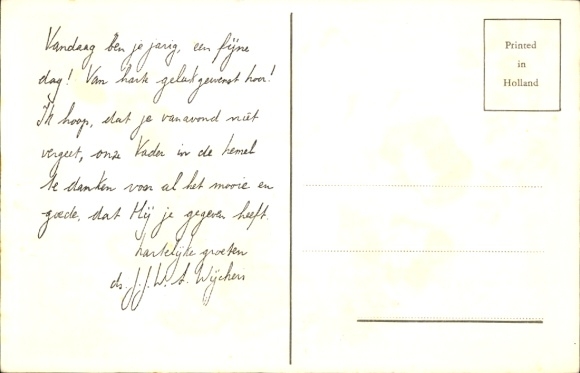 Vandaag ben je jarig, een fijne
dag! Van harte gelukgewenst hoor!
Ik hoop, dat je vanavond niet
vergeet, onze Vader in de hemel
te danken voor al het mooie en
goede, dat Hij je gegeven heeft.
hartelijke groeten
ds. J.J.W. A. Wijchers
Printed
in
Holland